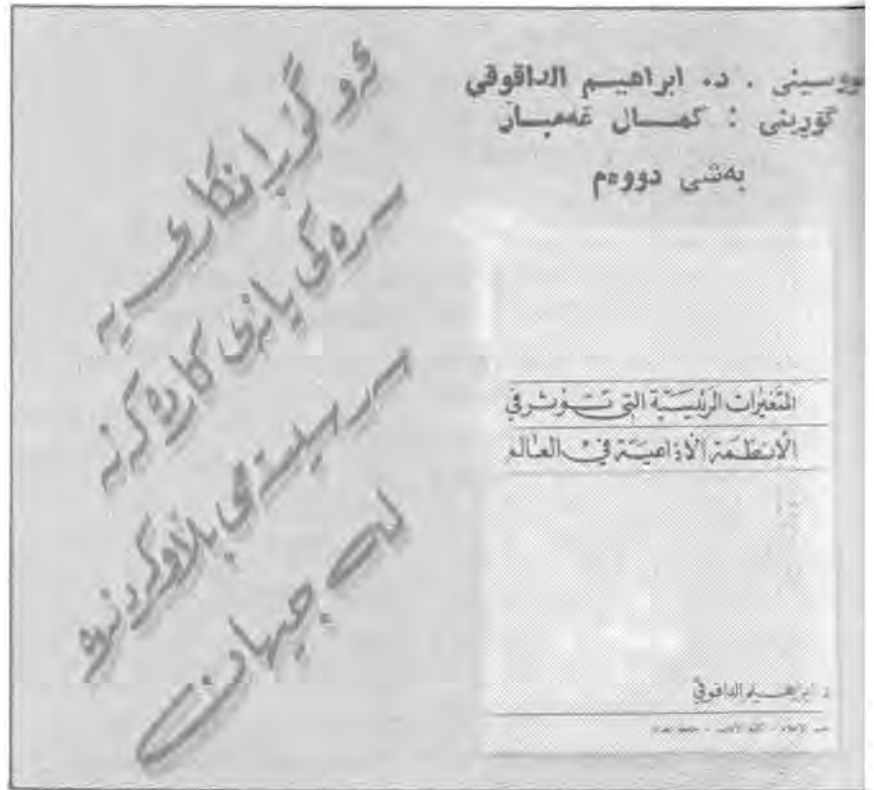 نووسینی . د. ابراهیم الداقوقي
گۆڕینی : کمال غەمبار
بەشی دووەم
ئەو گۆڕانکاری یە
سەرەکی یانەی کاردەکەنە
سەر سیستەمی بڵاوکردنەوە
لە جیهان
المتغيرات الرئيسية التي تـؤثر في
الأنظمة الاذاعية في العالم
د. ابراهيم الداقوقي